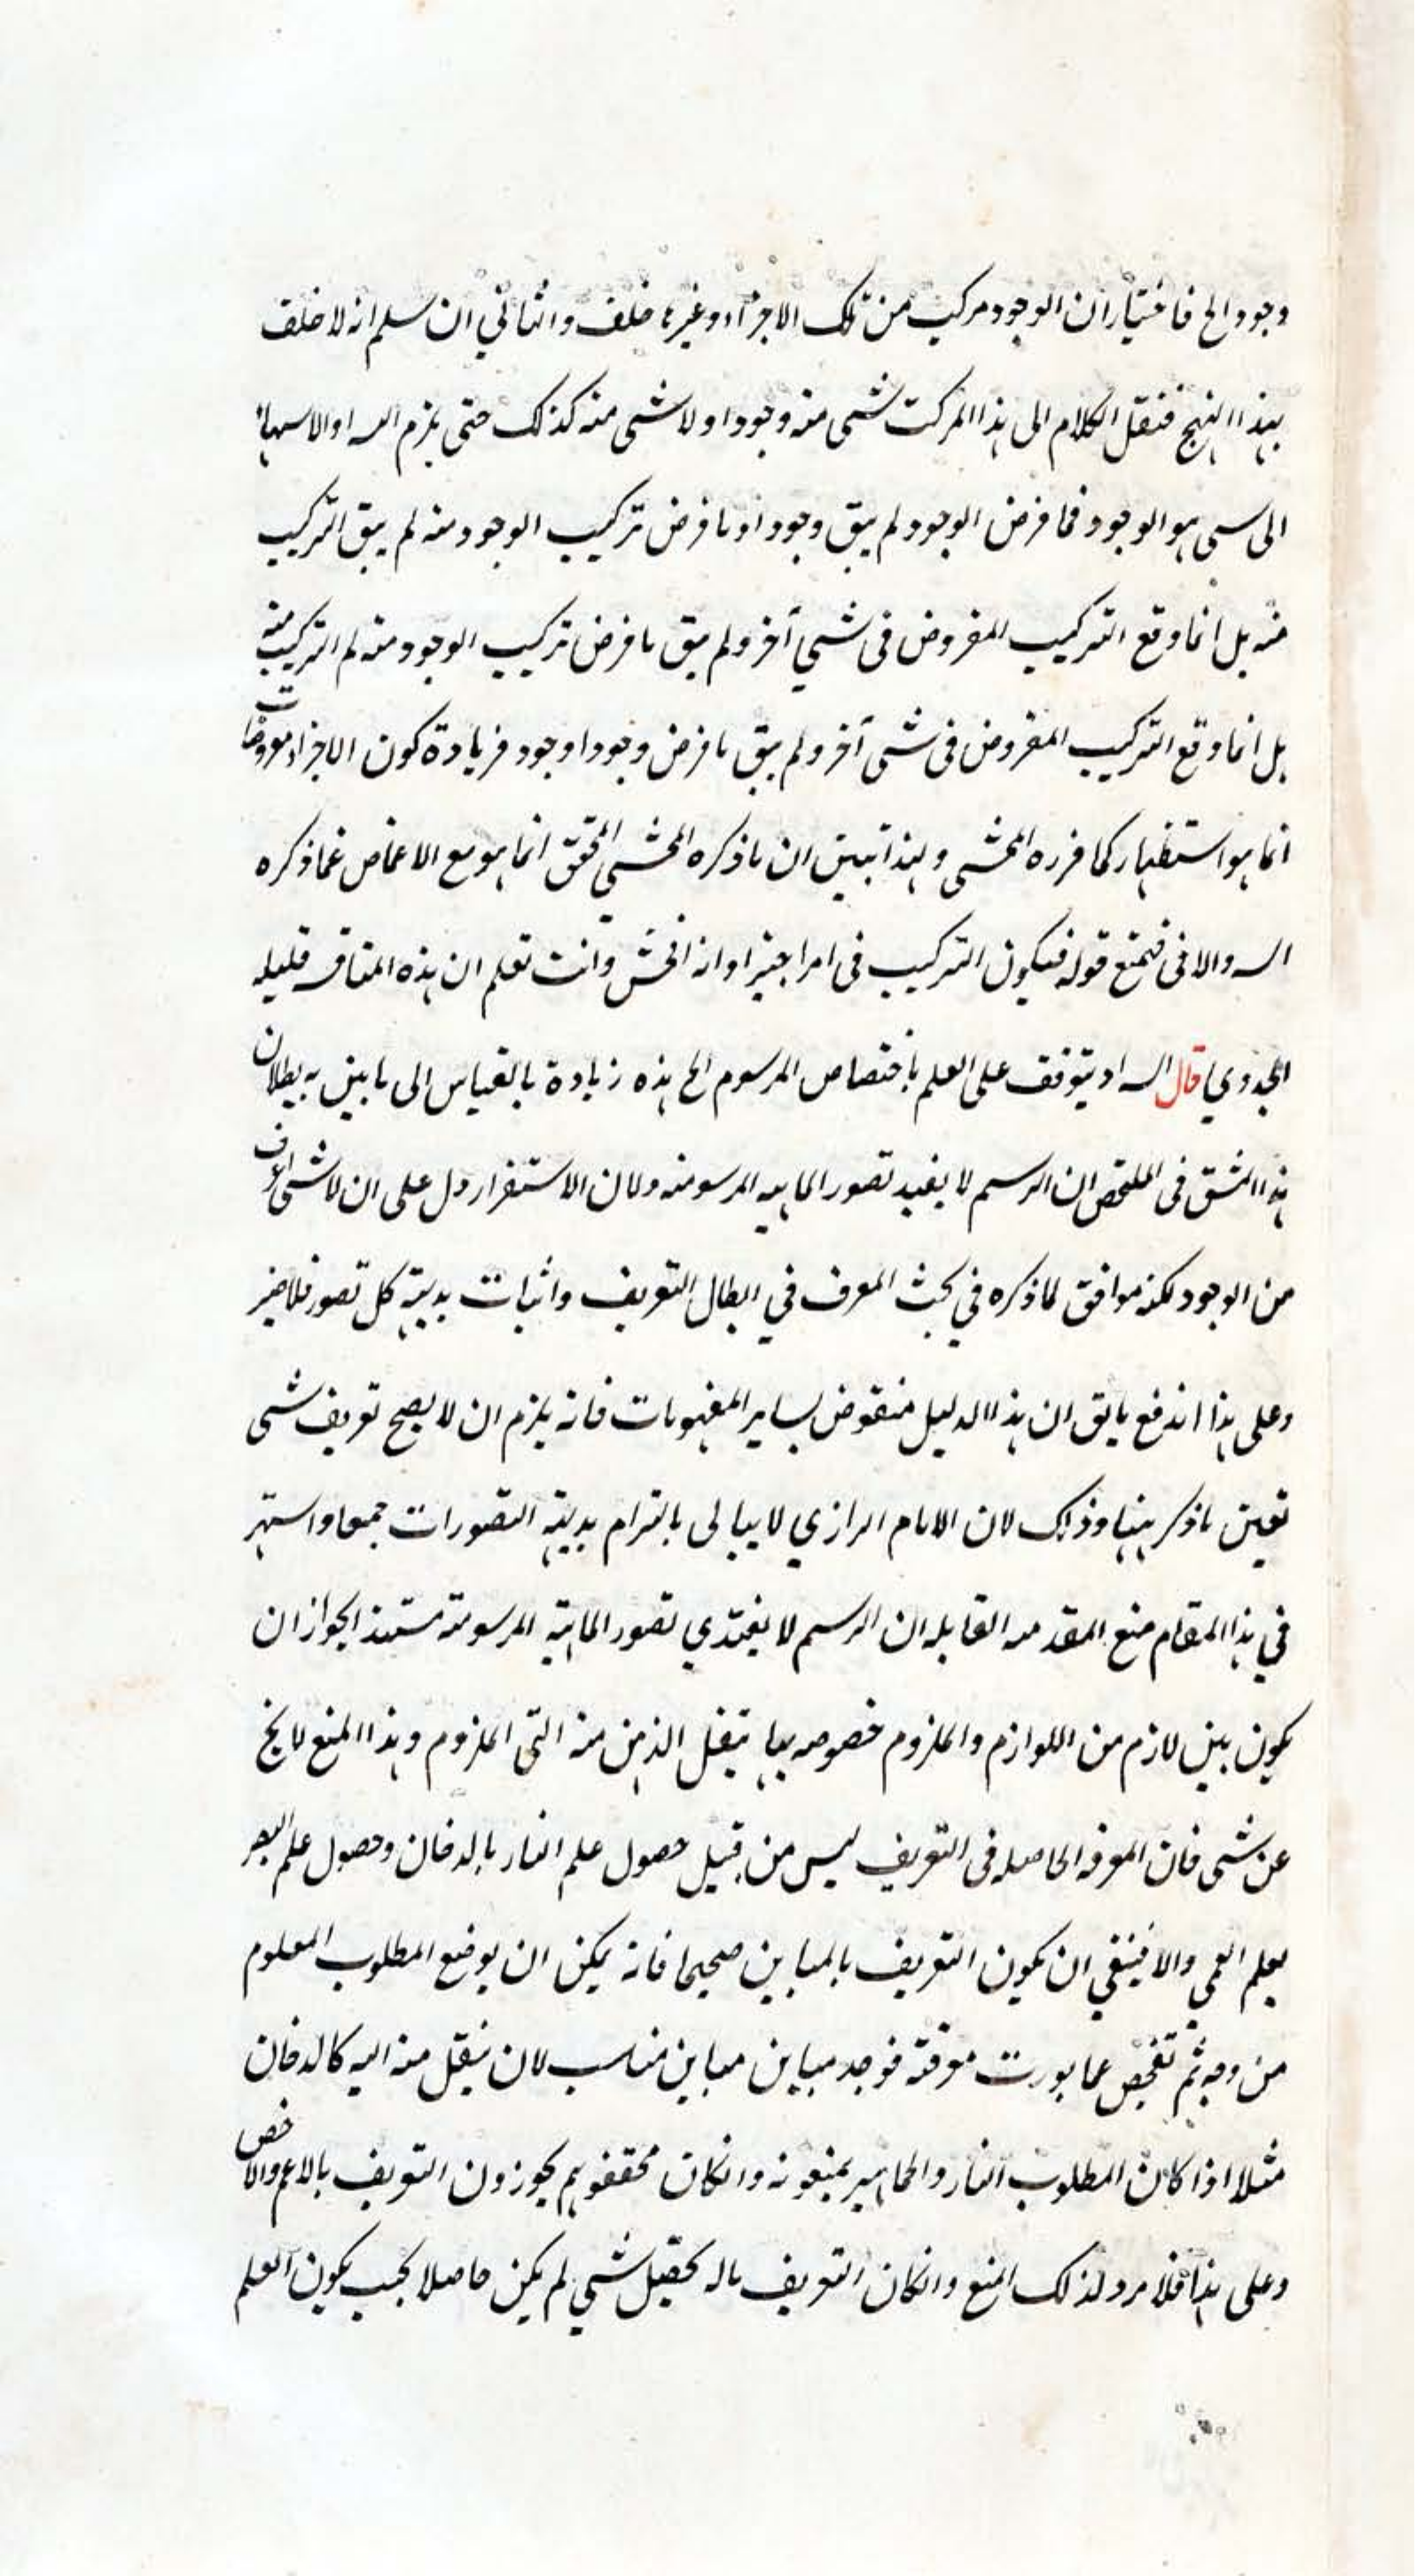 وجود الخ فاختيار ان الوجود مركب من تلك الاجزاء وغيرها خلف والثاني ان سلم انه لا خلف
بهذا النهج فننقل الكلام الى هذا المركب شئ منه وجود او لا شئ منه كذلك حتى يلزم التسـ او الانتهاء
الى سى هو الوجود فما فرض الوجود لم يبق وجودا وما فرض تركيب الوجود منه لم يبق التركيب
منه بل انما وقع التركيب المفروض فى شئ آخر ولم يبق ما فرض تركيب الوجود منه لم التركيب منه
بل انما وقع التركيب المفروض فى شئ آخر ولم يبق ما فرض وجودا وجود فزيادة كون الاجزاء معروضات
انما هو استظهار كما قرره المحشى وبهذا تبين ان ما ذكره المحشى المحقق انما هو مع الاغماض عما ذكره
الشـ والا فى فيمنع قوله فيكون التركيب فى امر اجنبى او انه افحش وانت تعلم ان هذه المناقشه قليله
الجدوي قال الشـ او يتوقف على العلم باختصاص المرسوم الخ هذه زيادة بالقياس الى ما بين به بطلان
هذا الشق فى الملخص ان الرسم لا يفيد تصور الماهيه المرسومه ولان الاستقرار دل على ان لا شئ اعرف
من الوجود لكنه موافق لما ذكره في بحث المعرف في ابطال التعريف واثبات بديهة كل تصور فلا ضير
وعلى هذا اندفع ما يق ان هذا الدليل منقوض بساير المفهومات فانه يلزم ان لا يصح تعريف شئ
بعين ما ذكر ههنا وذلك لان الامام الرازي لا يبالى بالتزام بديهة التصورات جمعا واستهر
في هذا المقام منع المقدمه القايله ان الرسم لا يفيد تصور الماهية المرسومة مستندا بجواز ان
يكون بين لازم من اللوازم والملزوم خصوصه بها ينتقل الذهن منه الى الملزوم وهذا المنع لا يخ
عن شئ فان المعرفه الحاصله فى التعريف ليس من قبيل حصول علم النار بالدخان وحصول علم البصر
بعلم العمي والا فينبغي ان يكون التعريف بالمباين صحيحا فانه يمكن ان يوضع المطلوب المعلوم
من وجه ثم تفحص عما يورث معرفته فوجد مباين مباين مناسب لان ينتقل منه اليه كالدخان
مثلا اذا كان المطلوب النار والجماهير يمنعونه وانكان محققوهم يجوزون التعريف بالاعم والاخص
وعلى هذا فلا مرد لذلك المنع وانكان التعريف ماله تحصيل شئ لم يكن حاصلا بحيث يكون العلم